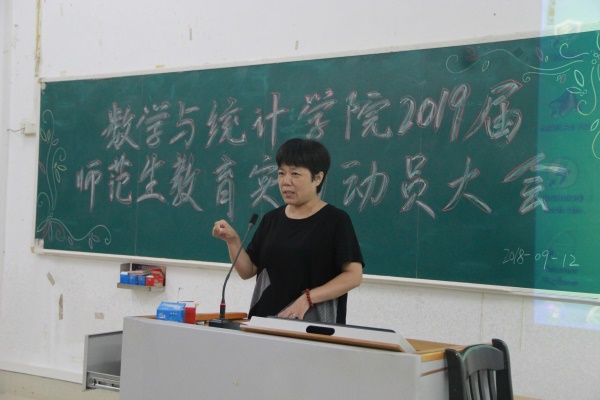 数学与统计学院2019届
师范生教育实 动员大会
2018-09-12